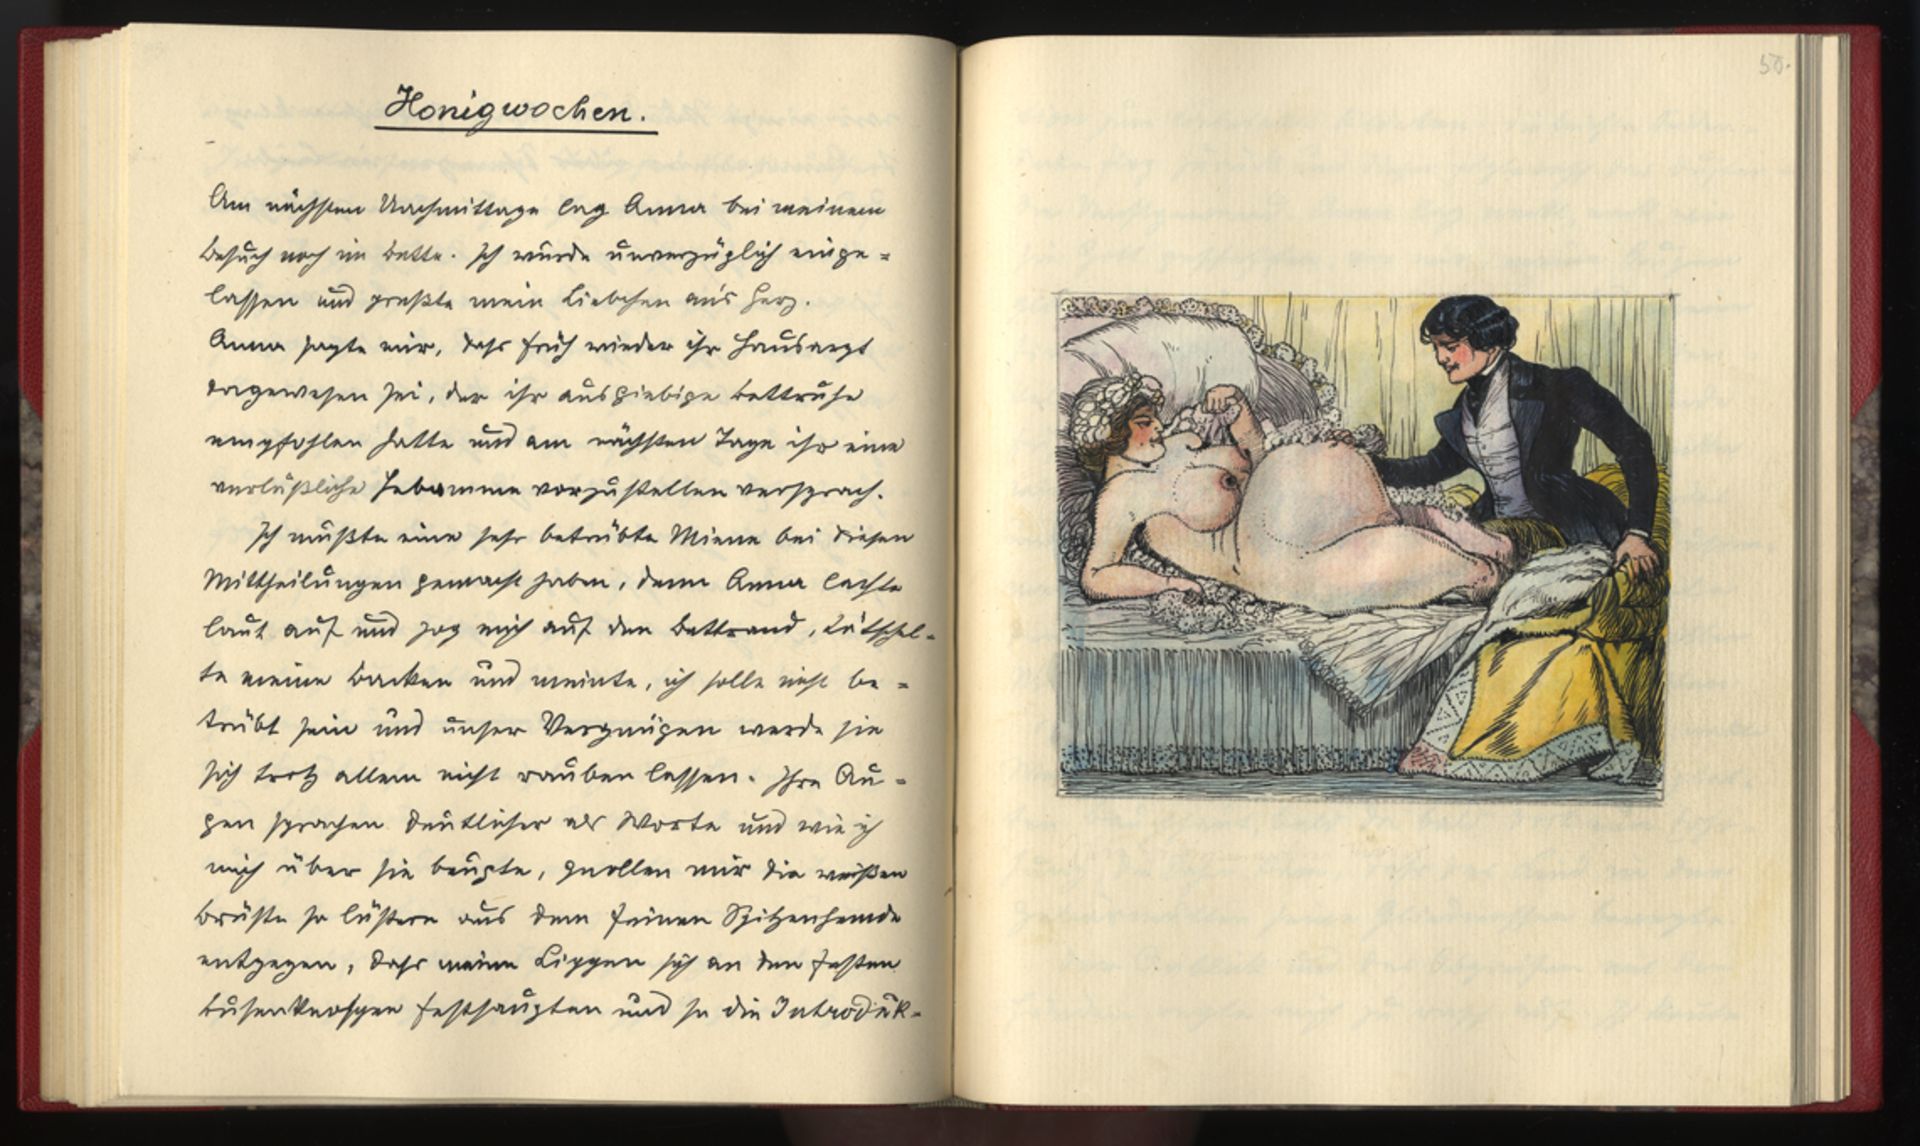 Honigwochen.
Am nächsten Nachmittage lag Anna bei meinem
Besuch noch im Bette. Ich wurde unverzüglich einge-
lassen und preßte mein Liebchen an's Herz.
Anna sagte mir, dass früh wieder ihr Hausarzt
dagewesen sei, der ihr ausgiebige Bettruhe
empfohlen hatte und am nächsten Tage ihr eine
verläßliche Hebamme vorzustellen versprach.
Ich mußte eine sehr betrübte Miene bei diesen
Mittheilungen gemacht haben, denn Anna lachte
laut auf und zog mich auf den Bettrand, tätschel-
te meine Backen und meinte, ich solle nicht be-
trübt sein und unser Vergnügen werde sie
sich trotz allem nicht rauben lassen. Ihre Au-
gen sprachen deutlicher als Worte und wie ich
mich über sie beugte, quollen mir die weißen
Brüste so lüstern aus dem feinen Spitzenhemde
entgegen, dass meine Lippen sich an den festen
Busenknospen festsaugten und so die Introduk-
50.